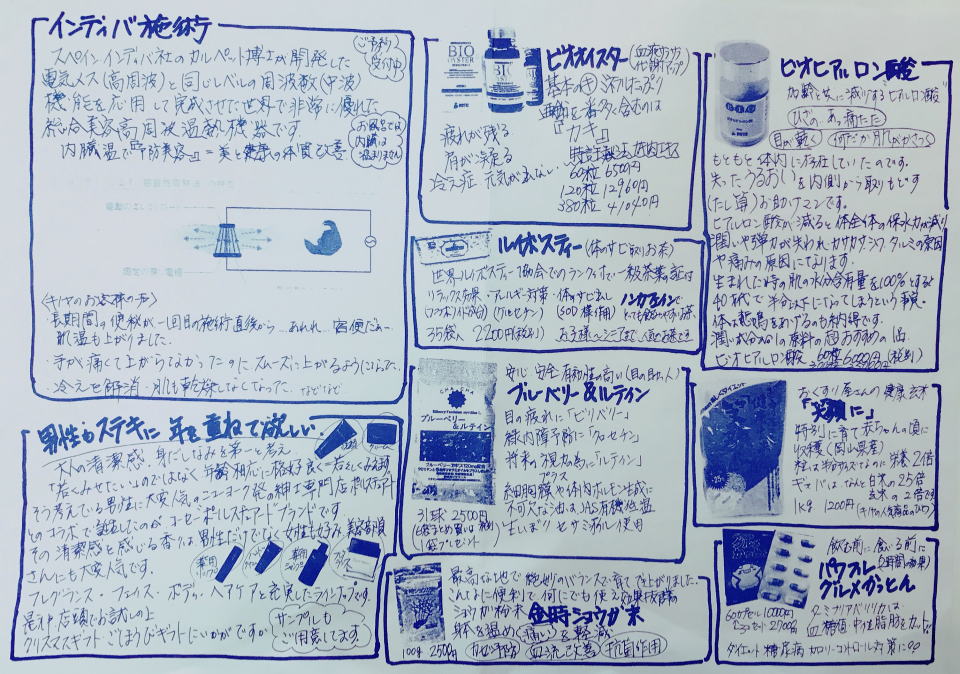 インディバ施術
ご予約受付中
スペインインディバ社のカルベット博士が開発した
電気メス(高周波)と同じレベルの周波数(中波)
機能を応用して完成させた世界で非常に優れた
総合美容高周波温熱機器です。
お風呂では内臓は温まりません
内臓温で『予防美容』=美と健康の体質改善
長期間の便秘が一回目の施術直後から…あれれ、宮便だぁー
肌温も上がりました。
手が痛くて上がらなかったのにスムーズに上がるようになった
冷えを解消・肌も乾燥しなくなった などなど
男性もステキに年を重ねて欲しい
大人の清潔感、身だしなみを第一と考え
「若くみせたい」のではなく年齢相応に格好良く
そう考えている男性に大人気のニューヨーク発の紳士専門店ポールスチュアート
とのコラボで誕生したのがコーセーポールスチュアートブランドです
その清潔感を感じる香りは男性だけでなく女性も好み美容部員
さんにも大変人気です。
フレグランス・フェイス・ボディ・ヘアケアと充実したラインナップです。
是非店頭でお試しの上
クリスマスギフトごほうびギフトにいかがですか
サンプルもご用意してます
ビオオイスター (血液サラサラ 代謝アップ)
BIO OYSTER
基本の
亜鉛を一番多く含むのは
『カキ』
疲れが残る
肩が
冷え症 元気が出ない
60粒 6500円
120粒 12960円
380粒 41040円
ルイボスティー (体のサビ取りお茶)
リラックス効果・アレルギー対策・体のサビ
ノンカフェインで
35袋入 2200円(税別)
安心 安全 有効性の高い(目の助っ人)
ブルーベリー&ルテイン
目の疲れに「ビリベリー」
緑内障予防に「クロセチン」
将来の視力の為の「ルテイン」
プラス
細胞膜や体内ホルモン生成に
不可欠な油はJAS有機低温
生しぼりセサミオイル使用
31球 2500円
ブルーベリー&ルテイン
こんなに便利で何にでも使える
ショウガ粉末 金時ショウガ末
身体を温めて痛いを軽減
100g 2500円 カゼ予防 血流改善 抗菌作用
ビオヒアルロン酸
加齢と共に減りするヒアルロン酸
ひざの あっ痛たた
目が乾く 何だか肌がかさつく
もともと体内に存在していたのです。
失ったうるおいを内側から取りもどす
(たし算)お助けマンです。
ヒアルロン酸が減ると体全体の保水力が減り
潤いや弾力が失われカサカサシワタルミの原因
や痛みの原因になります。
生まれた時の肌の水分含有量を100%とすると
40代で半分以下になってしまうという事実。
体は悲鳴をあげるのも納得です。
ビオヒアルロン酸
おくすり屋さんの健康玄米
「笑顔に」
特別に育て赤ちゃんの頃に
収穫(岡山県産)
粒は半分サイズなのに栄養2倍
ギャバはなんと白米の25倍
玄米の2倍です
1kg 1200円
飲む前に食べる前に
パワフル
グルメかっとん
ターミナリアベリリカは
血糖値・中性脂肪をカット
ダイエット 糖尿病 カロリーコントロール対策に